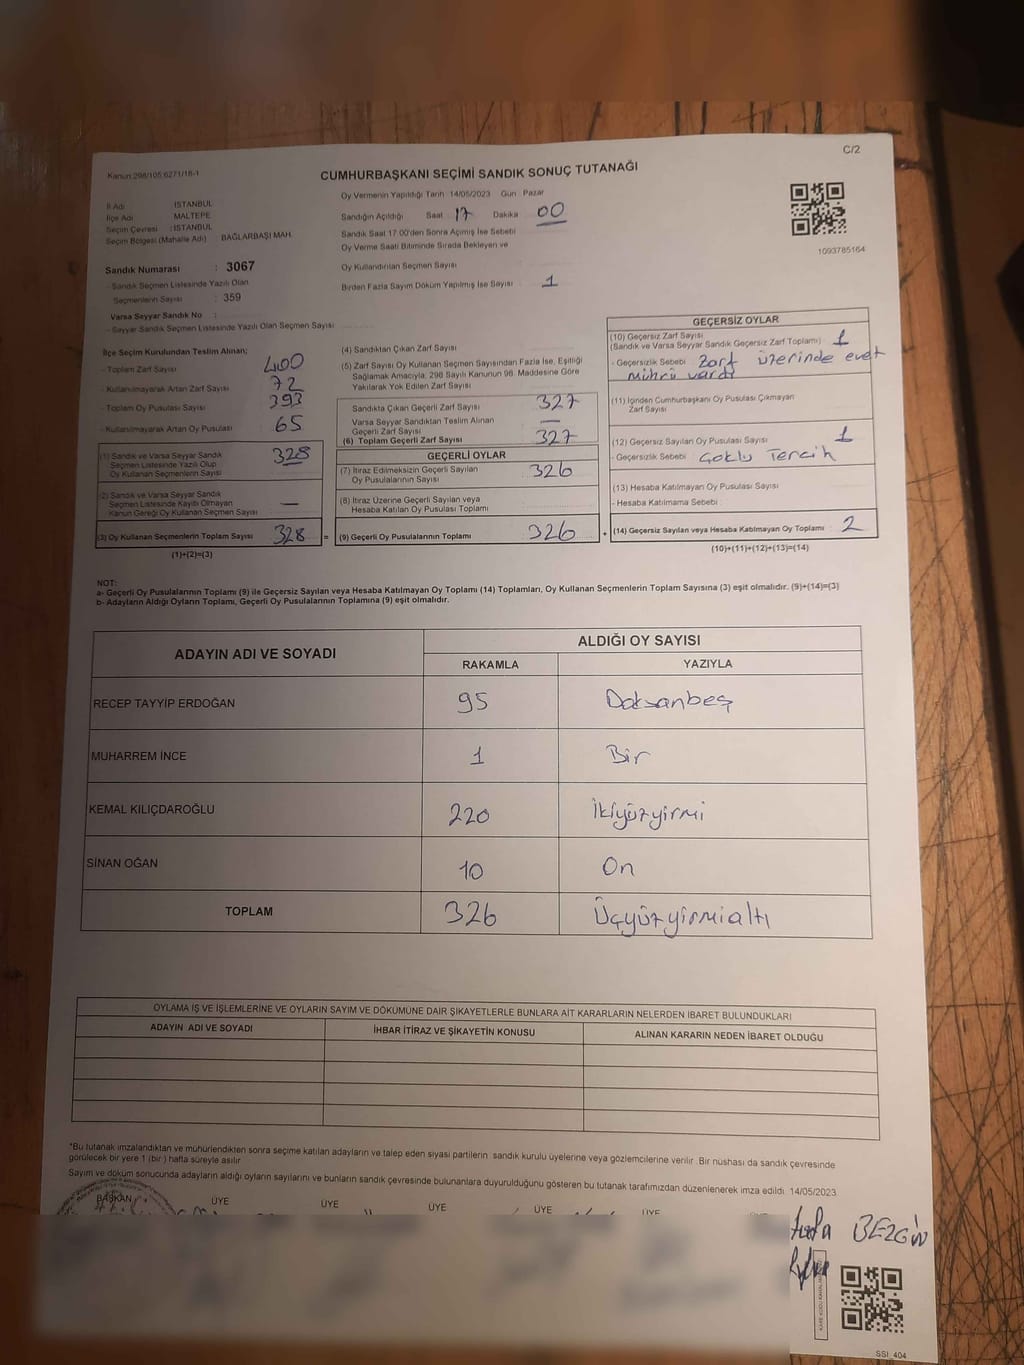 C/2
Kanun:298/105;6271/18-1
CUMHURBAŞKANI SEÇİMİ SANDIK SONUÇ TUTANAĞI
İl Adı İSTANBUL
İlçe Adı MALTEPE
Seçim Çevresi : İSTANBUL
Seçim Bölgesi (Mahalle Adı) BAĞLARBAŞI MAH.
Sandık Numarası : 3067
- Sandık Seçmen Listesinde Yazılı Olan
Seçmenlerin Sayısı : 359
Varsa Seyyar Sandık No :
- Seyyar Sandık Seçmen Listesinde Yazılı Olan Seçmen Sayısı
Oy Vermenin Yapıldığı Tarih 14/05/2023 Gün Pazar
Sandığın Açıldığı Saat 17 Dakika 00
Sandık Saat 17.00'den Sonra Açılmış İse Sebebi
Oy Verme Saati Bitiminde Sırada Bekleyen ve
Oy Kullandırılan Seçmen Sayısı
Birden Fazla Sayım Döküm Yapılmış İse Sayısı 1
1093785164
İlçe Seçim Kurulundan Teslim Alınan;
- Toplam Zarf Sayısı 400
- Kullanılmayarak Artan Zarf Sayısı 72
- Toplam Oy Pusulası Sayısı 393
- Kullanılmayarak Artan Oy Pusulası 65
(1) Sandık ve Varsa Seyyar Sandık
Seçmen Listesinde Yazılı Olup
Oy Kullanan Seçmenlerin Sayısı 328
(2) Sandık ve Varsa Seyyar Sandık
Seçmen Listesinde Kayıtlı Olmayan
Kanun Gereği Oy Kullanan Seçmen Sayısı —
(3) Oy Kullanan Seçmenlerin Toplam Sayısı 328 =
(1)+(2)=(3)
(4) Sandıktan Çıkan Zarf Sayısı
(5) Zarf Sayısı Oy Kullanan Seçmen Sayısından Fazla İse, Eşitliği
Sağlamak Amacıyla; 298 Sayılı Kanunun 98. Maddesine Göre
Yakılarak Yok Edilen Zarf Sayısı
Sandıkta Çıkan Geçerli Zarf Sayısı 327
Varsa Seyyar Sandıktan Teslim Alınan
Geçerli Zarf Sayısı —
(6) Toplam Geçerli Zarf Sayısı 327
GEÇERLİ OYLAR
(7) İtiraz Edilmeksizin Geçerli Sayılan
Oy Pusulalarının Sayısı 326
(8) İtiraz Üzerine Geçerli Sayılan veya
Hesaba Katılan Oy Pusulası Toplamı
(9) Geçerli Oy Pusulalarının Toplamı 326 +
GEÇERSİZ OYLAR
(10) Geçersiz Zarf Sayısı
(Sandık ve Varsa Seyyar Sandık Geçersiz Zarf Toplamı) 1
- Geçersizlik Sebebi Zarf üzerinde evet
mührü vardı
(11) İçinden Cumhurbaşkanı Oy Pusulası Çıkmayan
Zarf Sayısı
(12) Geçersiz Sayılan Oy Pusulası Sayısı 1
- Geçersizlik Sebebi Çoklu Tercih
(13) Hesaba Katılmayan Oy Pusulası Sayısı
- Hesaba Katılmama Sebebi
(14) Geçersiz Sayılan veya Hesaba Katılmayan Oy Toplamı 2
(10)+(11)+(12)+(13)=(14)
NOT:
a- Geçerli Oy Pusulalarının Toplamı (9) ile Geçersiz Sayılan veya Hesaba Katılmayan Oy Toplamı (14) Toplamları, Oy Kullanan Seçmenlerin Toplam Sayısına (3) eşit olmalıdır. (9)+(14)=(3)
b- Adayların Aldığı Oyların Toplamı, Geçerli Oy Pusulalarının Toplamına (9) eşit olmalıdır.
ADAYIN ADI VE SOYADI ALDIĞI OY SAYISI
RAKAMLA YAZIYLA
RECEP TAYYİP ERDOĞAN 95 Doksanbeş
MUHARREM İNCE 1 Bir
KEMAL KILIÇDAROĞLU 220 İkiyüzyirmi
SİNAN OĞAN 10 On
TOPLAM 326 Üçyüzyirmialtı
OYLAMA İŞ VE İŞLEMLERİNE VE OYLARIN SAYIM VE DÖKÜMÜNE DAİR ŞİKAYETLERLE BUNLARA AİT KARARLARIN NELERDEN İBARET BULUNDUKLARI
ADAYIN ADI VE SOYADI İHBAR İTİRAZ VE ŞİKAYETİN KONUSU ALINAN KARARIN NEDEN İBARET OLDUĞU
*Bu tutanak imzalandıktan ve mühürlendikten sonra seçime katılan adayların ve talep eden siyasi partilerin sandık kurulu üyelerine veya gözlemcilerine verilir. Bir nüshası da sandık çevresinde
görülecek bir yere 1 (bir) hafta süreyle asılır.
Sayım ve döküm sonucunda adayların aldığı oyların sayılarını ve bunların sandık çevresinde bulunanlara duyurulduğunu gösteren bu tutanak tarafımızdan düzenlenerek imza edildi. 14/05/2023
BAŞKAN ÜYE ÜYE ÜYE ÜYE ÜYE
BEZGİN
SSI_404